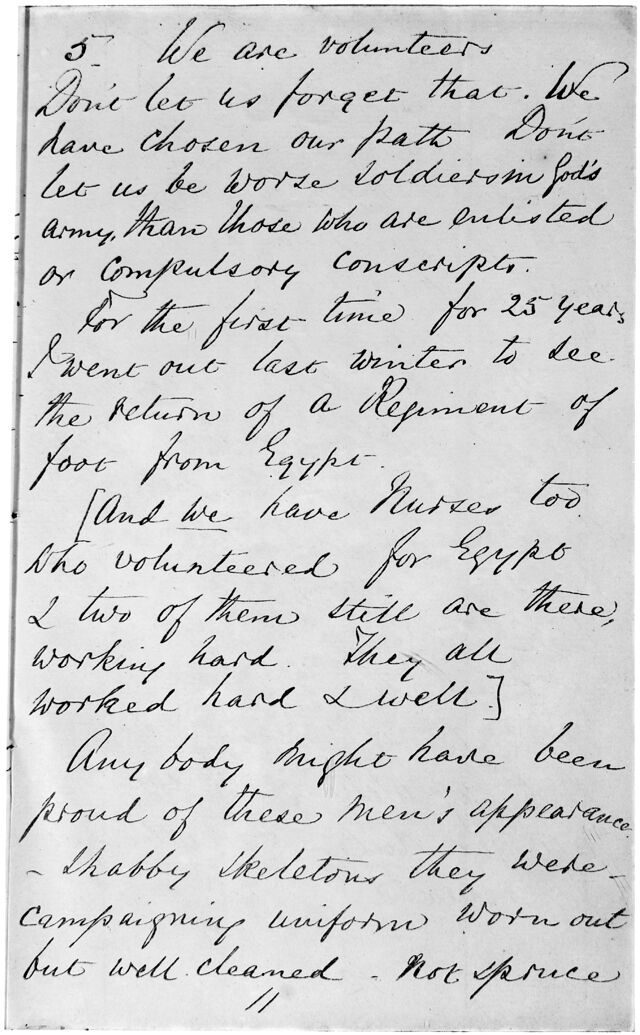 5 We are volunteers
Don't let us forget that. We
have chosen our path Don't
let us be worse soldiers in God's
army, than those who are enlisted
or compulsory conscripts.
For the first time for 25 years
I went out last winter to see
the return of a Regiment of
foot from Egypt.
[And we have Nurses too
who volunteered for Egypt
& two of them still are there,
working hard. They all
worked hard & well.]
Any body might have been
proud of these men's appearance.
- shabby skeletons they were -
campaigning uniform worn out
but well cleaned - not spruce
11